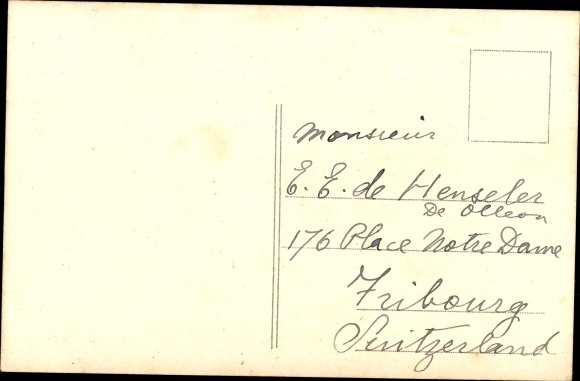 Monsieur
E. E. de Henseler
De Olleon
176 Place Notre Dame
Fribourg
Switzerland